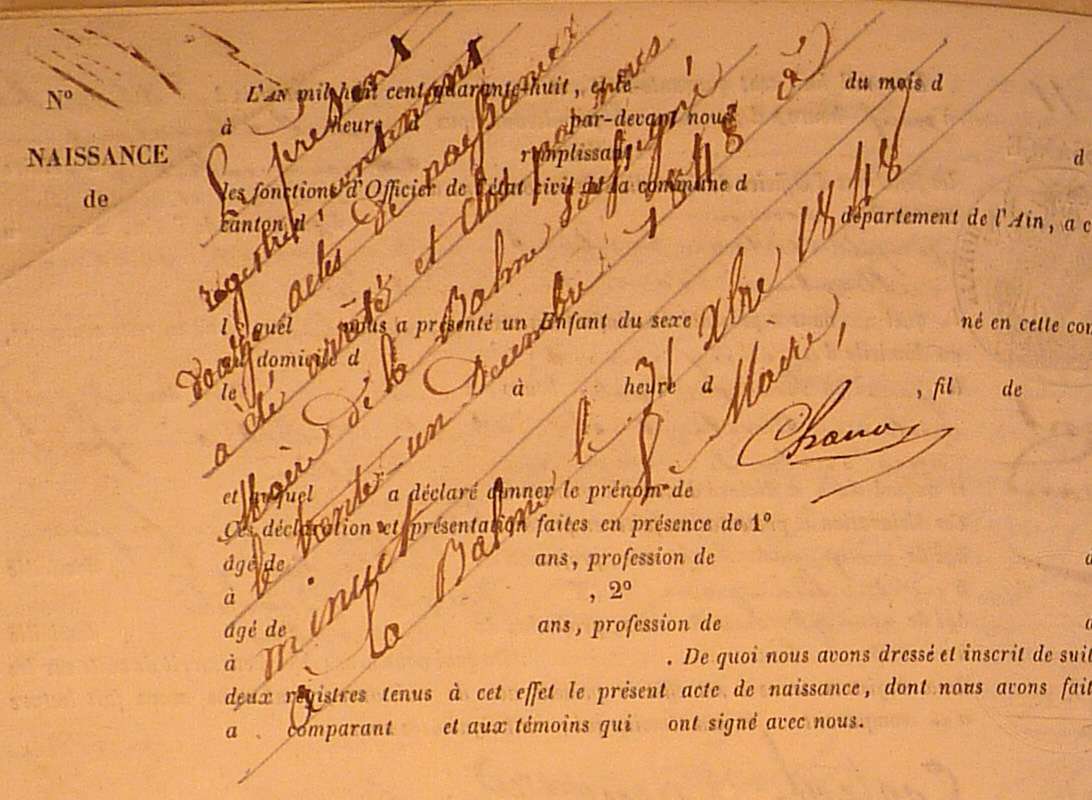 N°
NAISSANCE
de
L'AN mil huit cent quarante-huit, et le du mois d
à heure d par-devant nous
remplissant d
les fonctions d'Officier de l'état civil de la commune d
canton d département de l'Ain, a c
l quel nous a présenté un Enfant du sexe né en cette com
au domicile d
le à heure d , fil de
et auquel a déclaré donner le prénom de
Ces déclaration et présentation faites en présence de 1°
âgé de ans, profession de
à , 2°
âgé de ans, profession de
à . De quoi nous avons dressé et inscrit de suit
deux registres tenus à cet effet le présent acte de naissance, dont nous avons fait
a comparant et aux témoins qui ont signé avec nous.
Le présent
registre, contenant
actes de naissances
a été arrêté et clos par nous
Maire de la Balme soussigné
le trente-un Decembre 1848 à
minuit
à la Balme le 31 Xbre 1848
Le Maire,